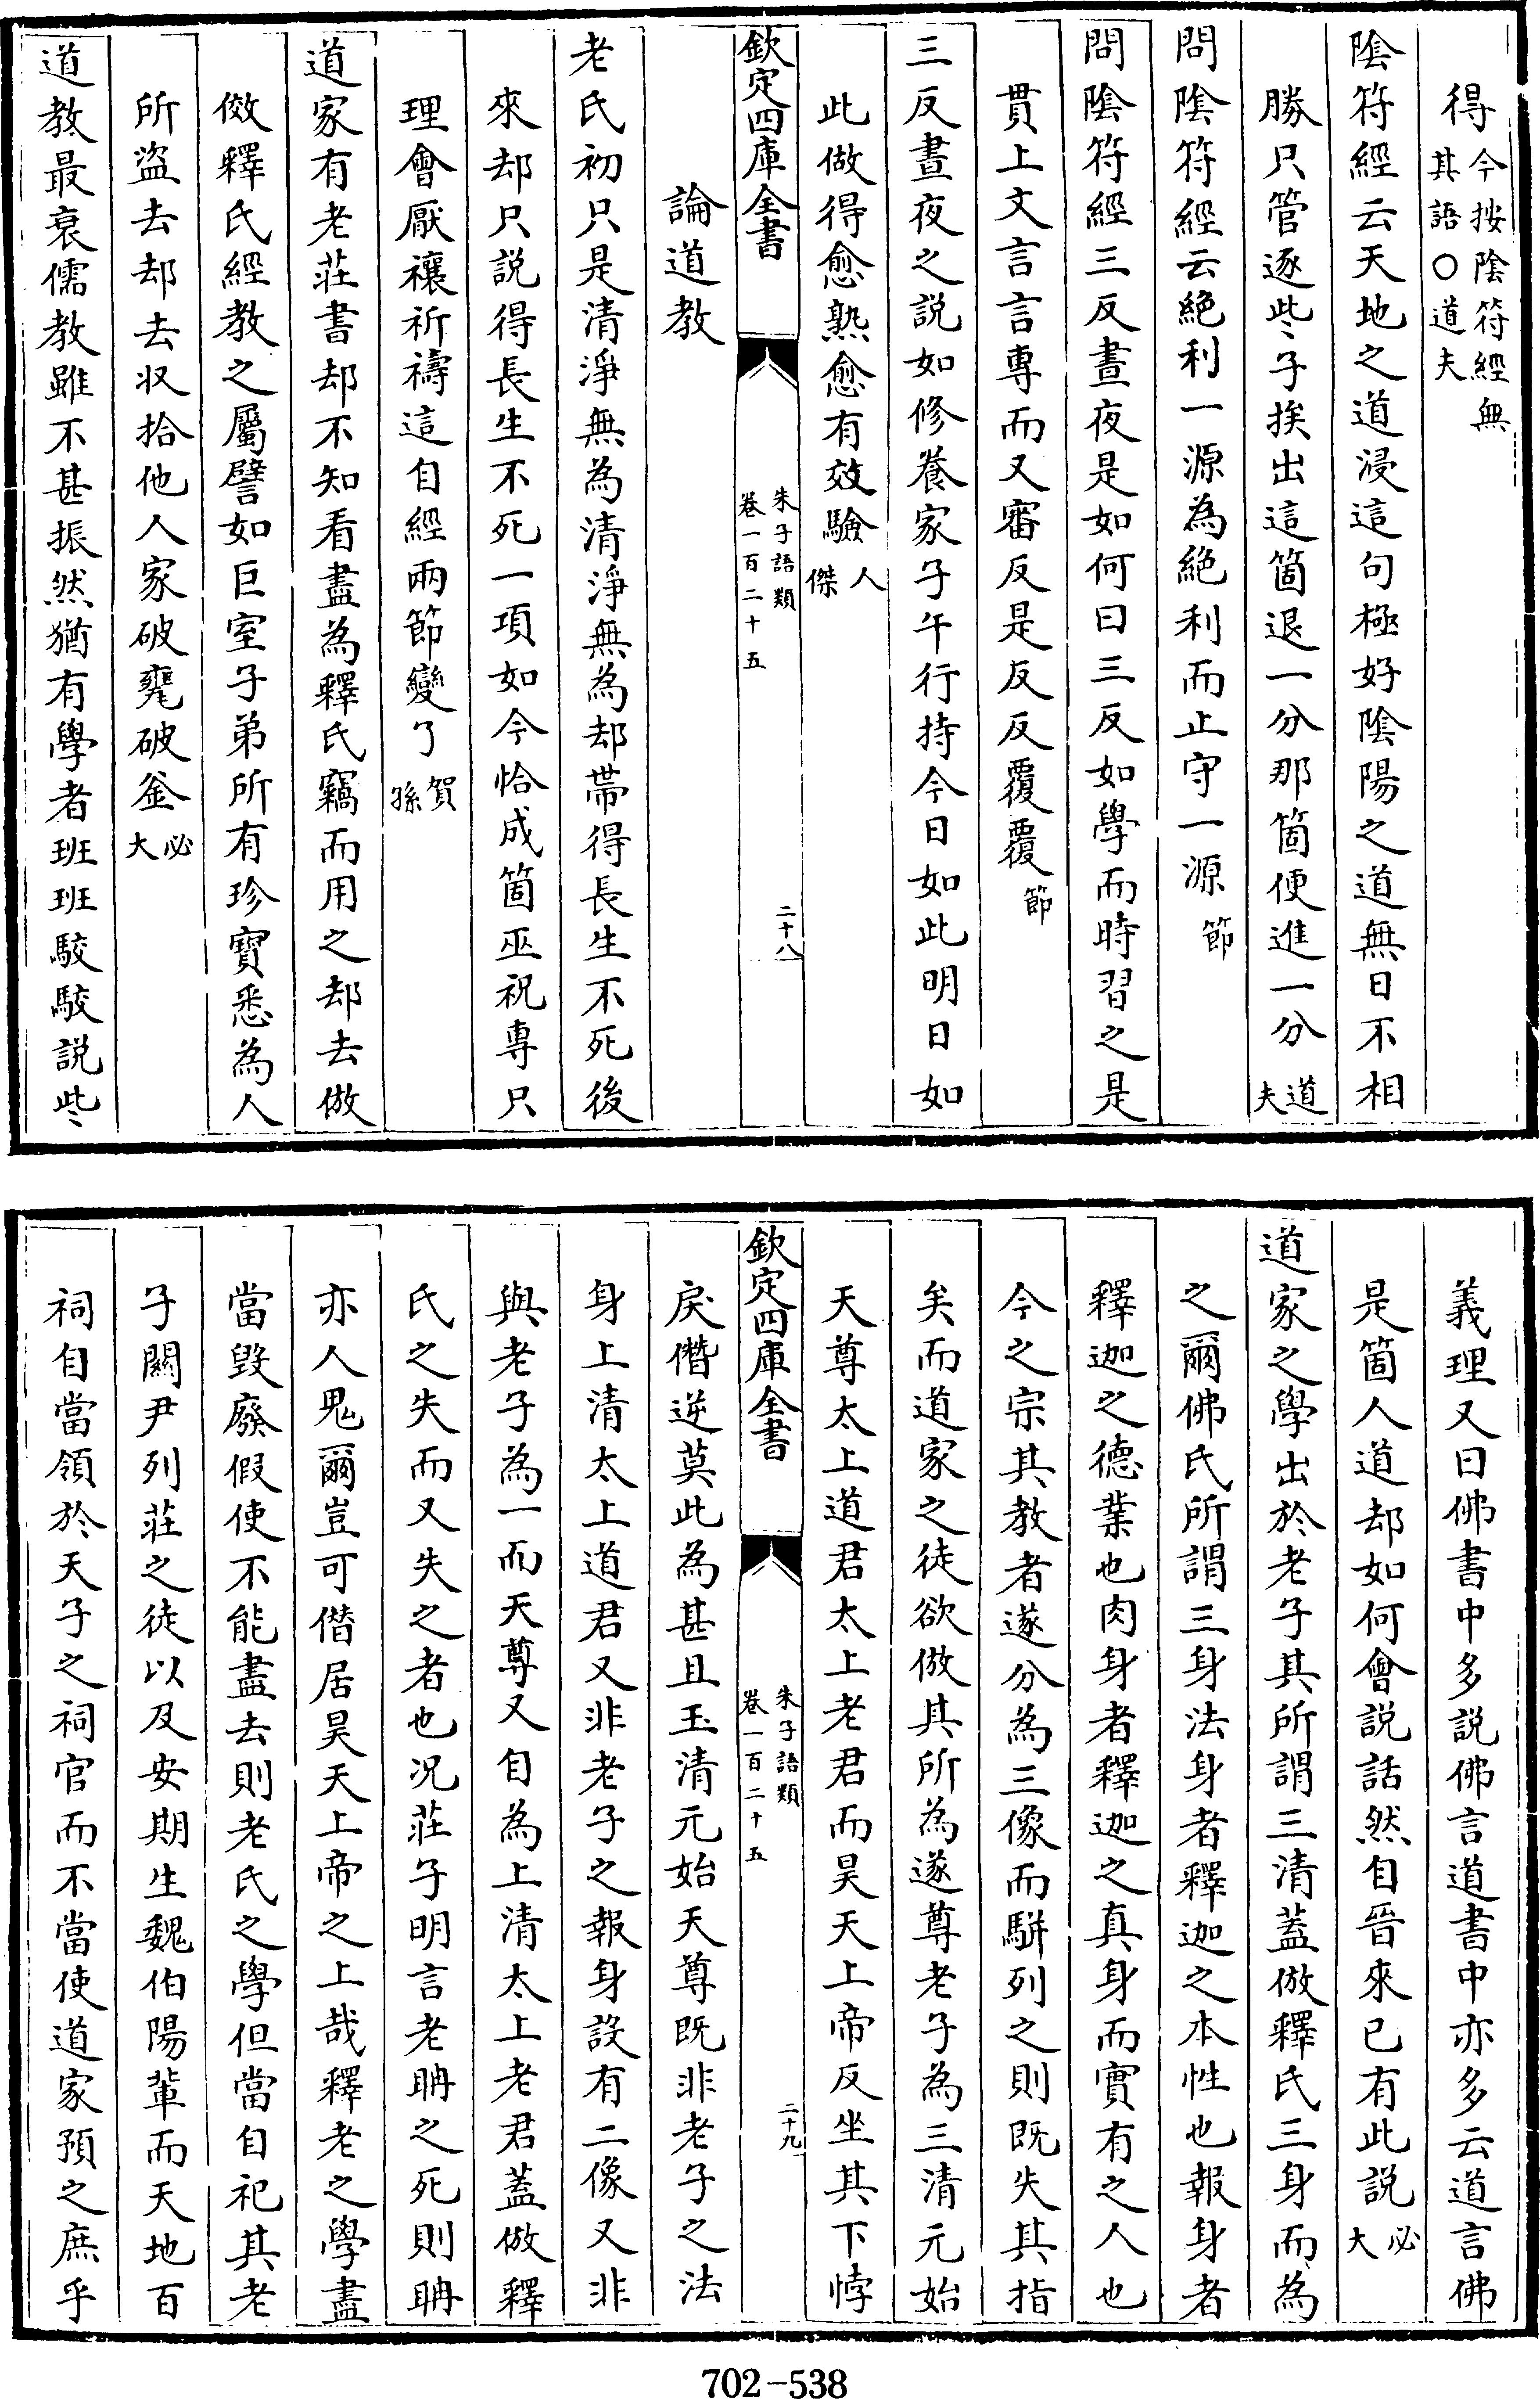 得今按陰符經無其語○道夫
陰符經云天地之道浸這句極好陰陽之道無日不相
勝只管逐些子挨出這箇退一分那箇便進一分道夫
問陰符經云絶利一源為絶利而止守一源節
問陰符經三反晝夜是如何曰三反如學而時習之是
貫上文言言專而又審反是反反覆覆節
三反晝夜之説如修養家子午行持今日如此明日如
此做得愈熟愈有效驗人傑
欽定四庫全書
朱子語類
卷一百二十五
二十八
論道教
老氏初只是清淨無為清淨無為却帶得長生不死後
來却只説得長生不死一項如今恰成箇巫祝專只
理會厭禳祈禱這自經兩節變了賀孫
道家有老莊書却不知看盡為釋氏竊而用之却去倣
傚釋氏經教之屬譬如巨室子弟所有珍寶悉為人
所盜去却去收拾他人家破甕破釜必大
道教最衰儒教雖不甚振然猶有學者班班駁駁説些
義理又曰佛書中多説佛言道書中亦多云道言佛
是箇人道却如何會説話然自晉來已有此説必大
道家之學出於老子其所謂三清蓋倣釋氏三身而為
之爾佛氏所謂三身法身者釋迦之本性也報身者
釋迦之德業也肉身者釋迦之真身而實有之人也
今之宗其教者遂分為三像而駢列之則既失其指
矣而道家之徒欲倣其所為遂尊老子為三清元始
天尊太上道君太上老君而昊天上帝反坐其下悖
欽定四庫全書
朱子語類
卷一百二十五
二十九
戾僭逆莫此為甚且玉清元始天尊既非老子之法
身上清太上道君又非老子之報身設有二像又非
與老子為一而天尊又自為上清太上老君蓋倣釋
氏之失而又失之者也況莊子明言老聃之死則聃
亦人鬼爾豈可僭居昊天上帝之上哉釋老之學盡
當毀廢假使不能盡去則老氏之學但當自祀其老
子關尹列莊之徒以及安期生魏伯陽輩而天地百
祠自當領於天子之祠官而不當使道家預之庶乎
702-538